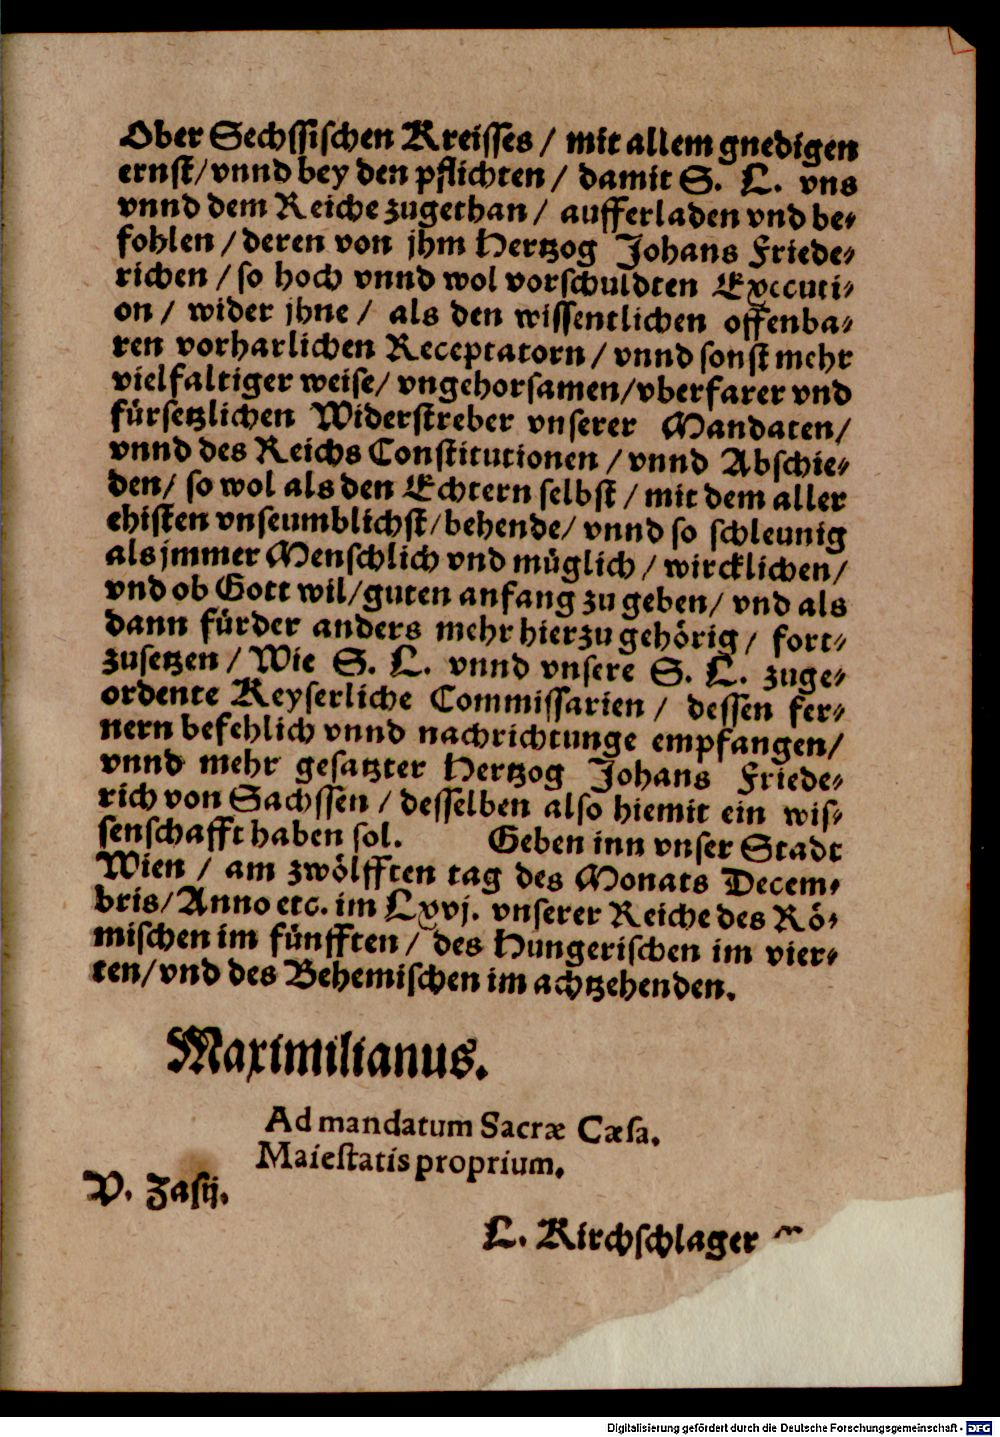 Ober Sechssischen Kreisses / mit allem gnedigen
ernst/ vnnd bey den pflichten / damit S. L. vns
vnnd dem Reiche zugethan / aufferladen vnd be-
fohlen / deren von jhm Hertzog Johans Friede-
richen / so hoch vnnd wol vorschuldten Executi-
on / wider jhne / als den wissentlichen offenba-
ren vorharlichen Receptatorn / vnnd sonst mehr
vielfaltiger weise/ vngehorsamen/ vberfarer vnd
fürsetzlichen Widerstreber vnserer Mandaten/
vnnd des Reichs Constitutionen / vnnd Abschie-
den/ so wol als den Echtern selbst / mit dem aller
ehisten vnseumblichst/ behende/ vnnd so schleunig
als jmmer Menschlich vnd müglich / wircklichen/
vnd ob Gott wil/ guten anfang zu geben/ vnd als
dann fürder anders mehr hierzu gehörig / fort-
zusetzen / Wie S. L. vnnd vnsere S. L. zuge-
ordente Keyserliche Commissarien / dessen fer-
nern befehlich vnnd nachrichtunge empfangen/
vnnd mehr gesatzter Hertzog Johans Friede-
rich von Sachssen / desselben also hiemit ein wis-
senschafft haben sol. Geben inn vnser Stadt
Wien / am zwölfften tag des Monats Decem-
bris/ Anno etc. im Lxvj. vnserer Reiche des Rö-
mischen im fünfften / des Hungerischen im vier-
ten/ vnd des Behemischen im achtzehenden.
Maximilianus.
Ad mandatum Sacræ Cæsa.
Maiestatis proprium.
V. Zasij.
L. Kirchschlager
Digitalisierung gefördert durch die Deutsche Forschungsgemeinschaft - DFG